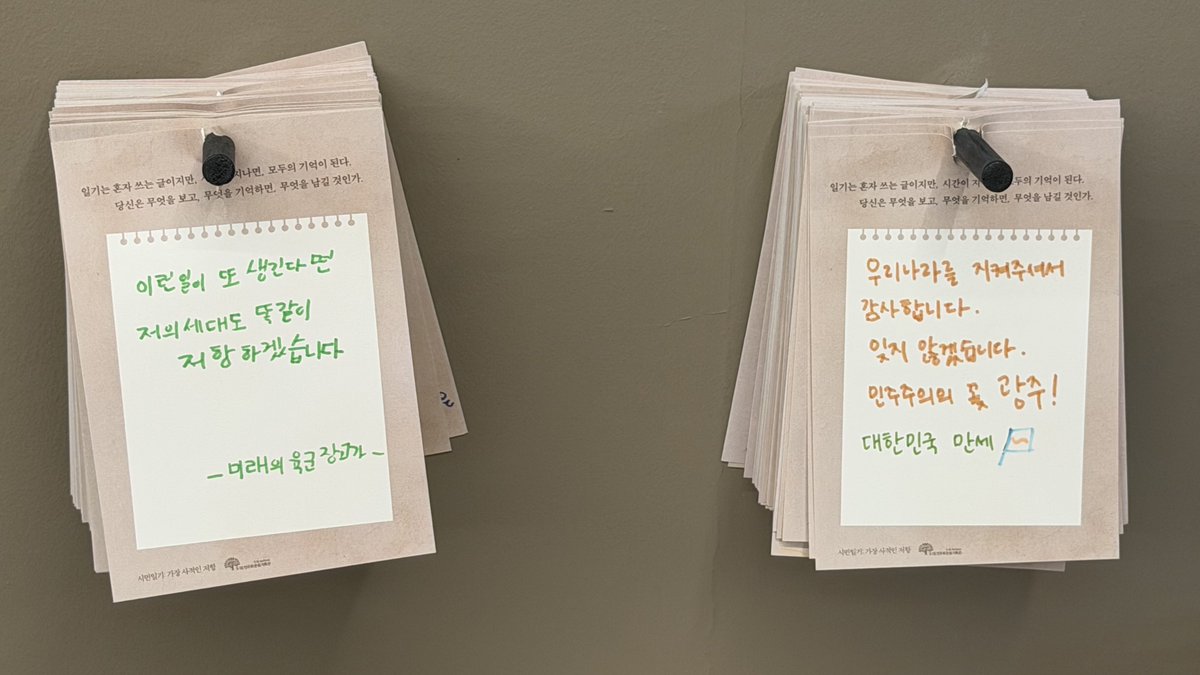 일기는 혼자 쓰는 글이지만, 지나면, 모두의 기억이 된다.
당신은 무엇을 보고, 무엇을 기억하며, 무엇을 남길 것인가.
이런일이 또 생긴다면
저의세대도 똑같이
저항하겠습니다
- 미래의 육군 장교가 -
시민일기: 가장 사적인 저항
일기는 혼자 쓰는 글이지만, 시간이 기억이 된다.
당신은 무엇을 보고, 무엇을 기억하며, 무엇을 남길 것인가.
우리나라를 지켜주셔서
감사합니다.
잊지 않겠습니다.
민주주의의 꽃 광주!
대한민국 만세
시민일기: 가장 사적인 저항